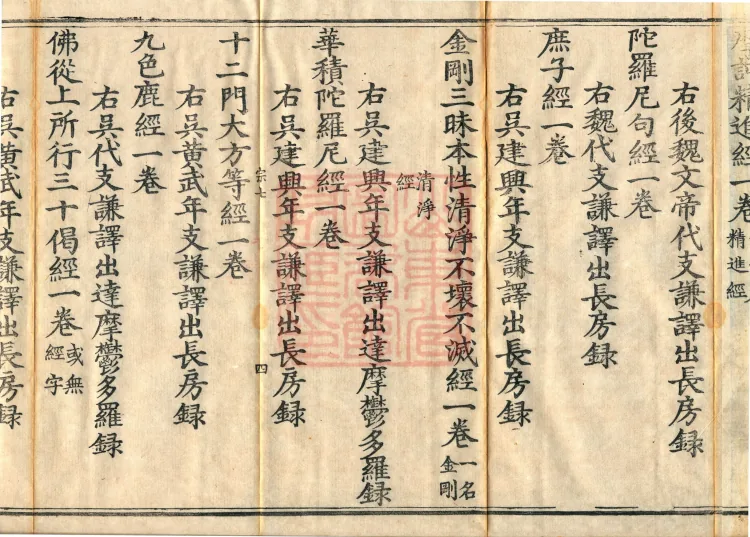 精進經一卷精進經
右後魏文帝代支謙譯出長房録
陀羅尼句經一卷
右魏代支謙譯出長房録
庶子經一卷
右吳建興年支謙譯出長房録
金剛三昧本性清淨不壞不滅經一卷一名金剛
清淨經
右吳建興年支謙譯出達摩鬱多羅録
華積陀羅尼經一卷
右吳建興年支謙譯出長房録
宗七
四
十二門大方等經一卷
右吳黄武年支謙譯出長房録
九色鹿經一卷
右吳代支謙譯出達摩鬱多羅録
佛從上所行三十偈經一卷或無經字
右吳黄武年支謙譯出長房録